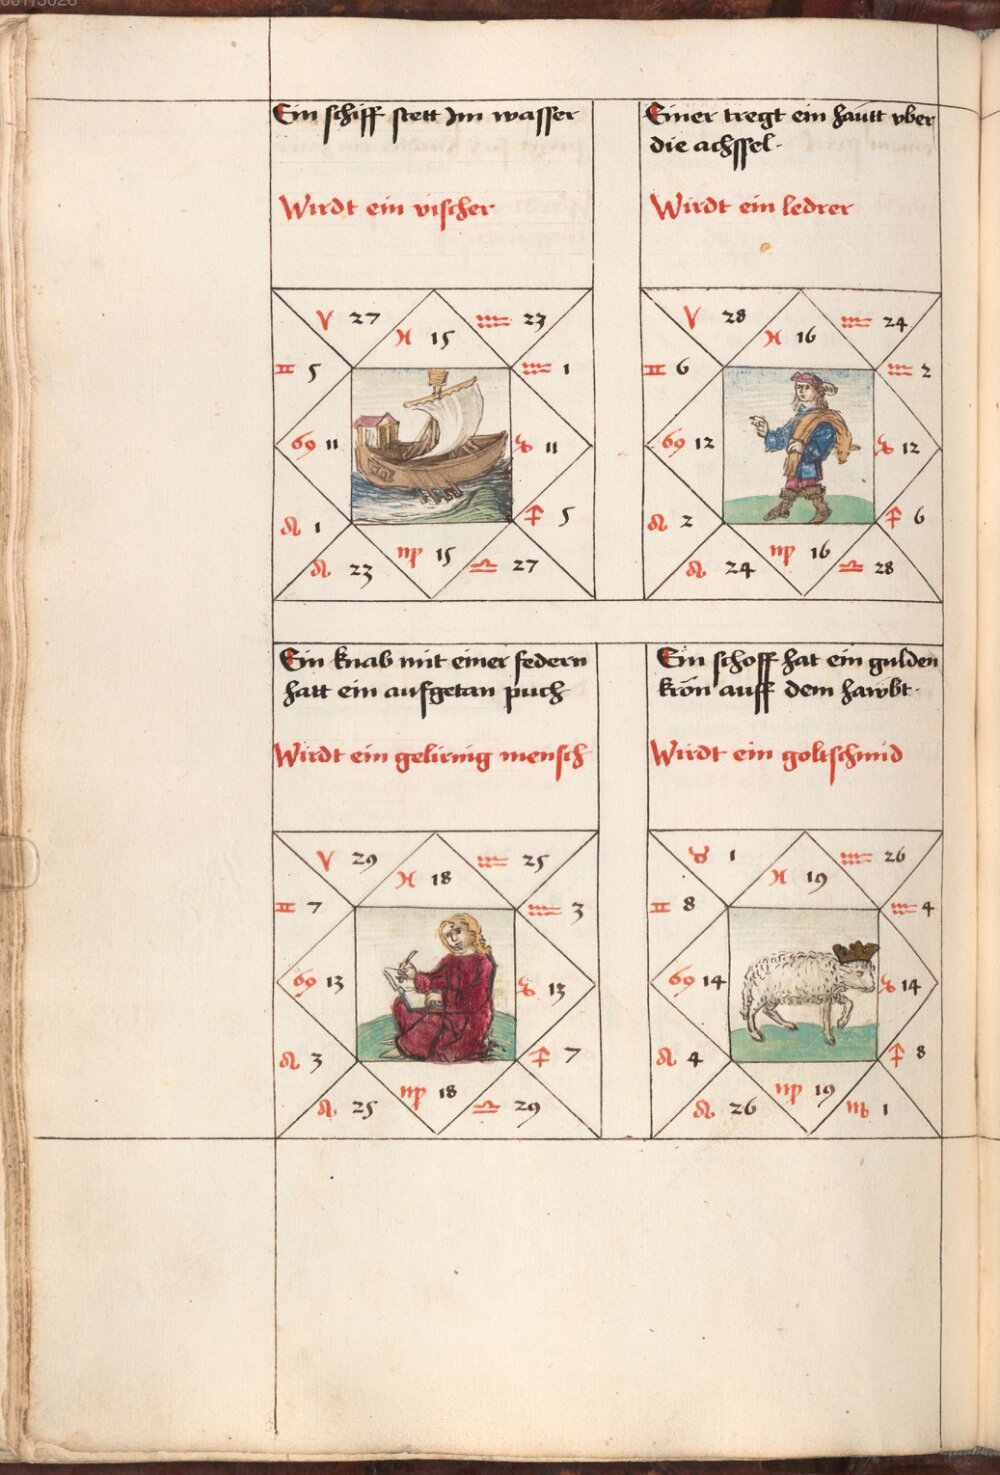 Ein schiff stett Im wasser
Wirdt ein vischer
♈ 27
♓ 15
♒ 23
♊ 5
♒ 1
♋ 11
♑ 11
♌ 1
♐ 5
♌ 23
♍ 15
♎ 27
Einer tregt ein hautt vber
die achssel.
Wirdt ein ledrer
♈ 28
♓ 16
♒ 24
♊ 6
♒ 2
♋ 12
♑ 12
♌ 2
♐ 6
♌ 24
♍ 16
♎ 28
Ein knab mit einer federn
hatt ein aufgetan puch
Wirdt ein gelirnig mensch
♈ 29
♓ 18
♒ 25
♊ 7
♒ 3
♋ 13
♑ 13
♌ 3
♐ 7
♌ 25
♍ 18
♎ 29
Ein schoff hat ein gulden
kron auff dem hawbt.
Wirdt ein goltschmid
♉ 1
♓ 19
♒ 26
♊ 8
♒ 4
♋ 14
♑ 14
♌ 4
♐ 8
♌ 26
♍ 19
♏ 1